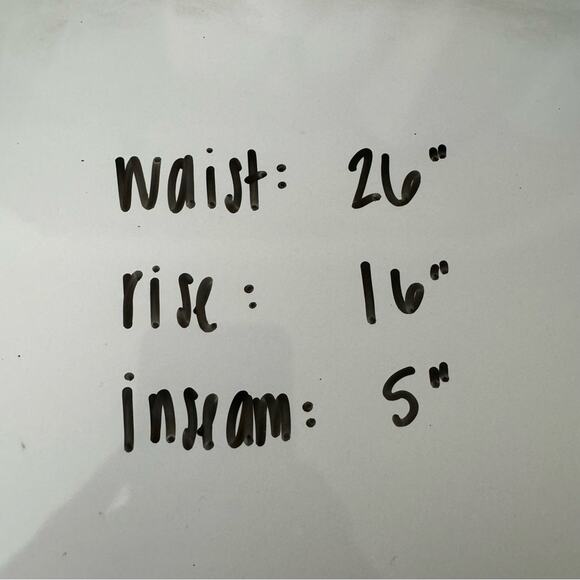 waist: 26"
rise: 16"
inseam: 5"